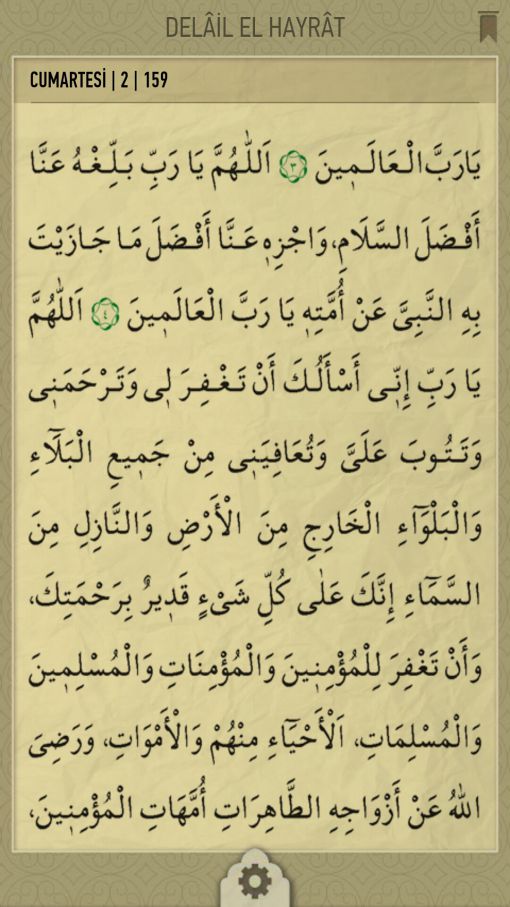 DELÂİL EL HAYRÂT
CUMARTESİ | 2 | 159
يَارَبَّ الْعَالَمِينَ ﴿٣﴾ اَللّٰهُمَّ يَا رَبِّ بَلِّغْهُ عَنَّا
أَفْضَلَ السَّلَامِ، وَاجْزِهِ عَنَّا أَفْضَلَ مَا جَازَيْتَ
بِهِ النَّبِيَّ عَنْ أُمَّتِهِ يَا رَبَّ الْعَالَمِينَ ﴿٤﴾ اَللّٰهُمَّ
يَا رَبِّ إِنِّى أَسْأَلُكَ أَنْ تَغْفِرَ لِى وَتَرْحَمَنِى
وَتَتُوبَ عَلَىَّ وَتُعَافِيَنِى مِنْ جَمِيعِ الْبَلَٓاءِ
وَالْبَلْوَٓاءِ الْخَارِجِ مِنَ الْأَرْضِ وَالنَّازِلِ مِنَ
السَّمَٓاءِ إِنَّكَ عَلٰى كُلِّ شَىْءٍ قَدِيرٌ بِرَحْمَتِكَ،
وَأَنْ تَغْفِرَ لِلْمُؤْمِنِينَ وَالْمُؤْمِنَاتِ وَالْمُسْلِمِينَ
وَالْمُسْلِمَاتِ، اَلْأَحْيَٓاءِ مِنْهُمْ وَالْأَمْوَاتِ، وَرَضِىَ
اللّٰهُ عَنْ أَزْوَاجِهِ الطَّاهِرَاتِ أُمَّهَاتِ الْمُؤْمِنِينَ،